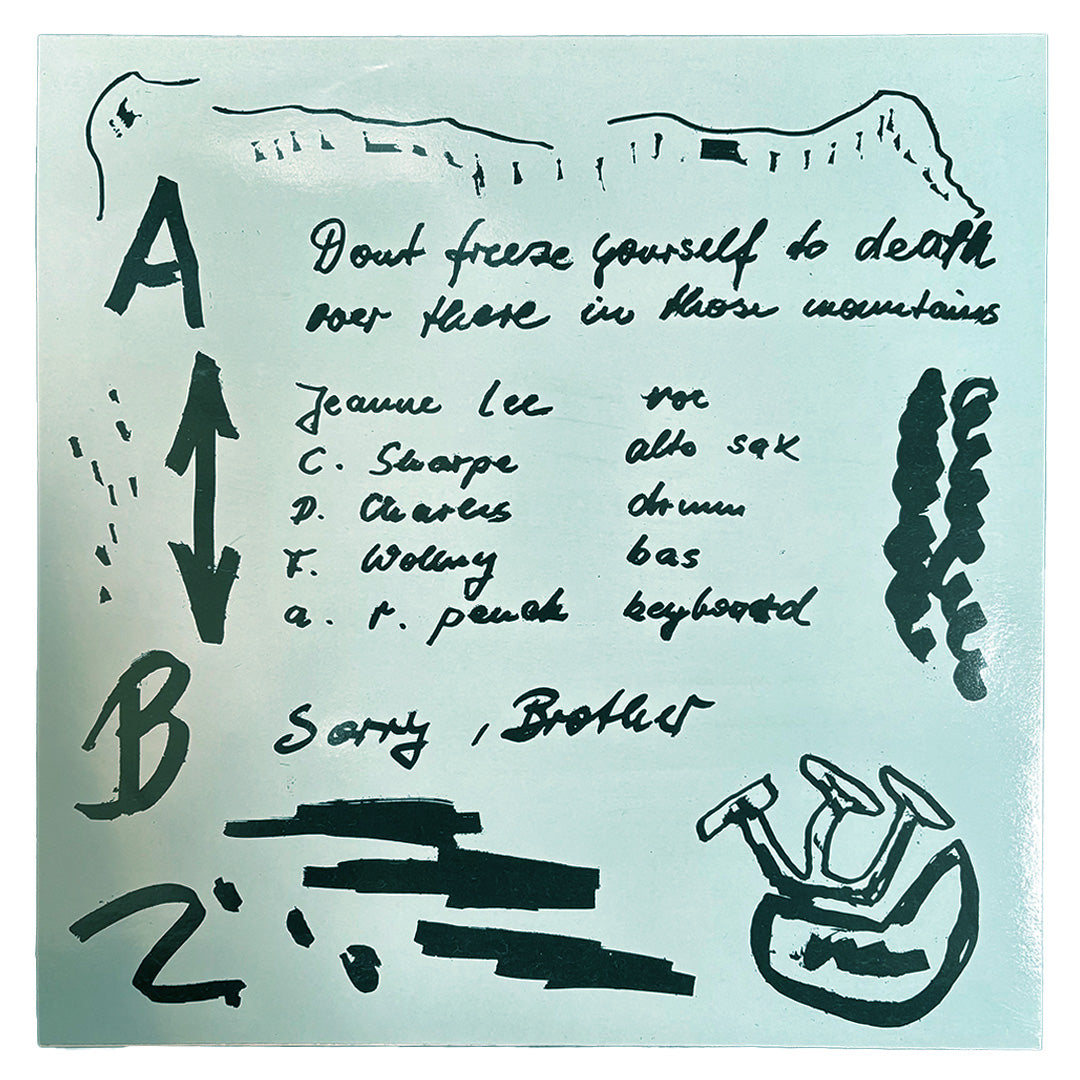 A
Dont freeze yourself to death
over there in those mountains
Jeanne Lee voc
C. Sharpe alto sax
D. Charles drumm
F. Wollny bas
a. r. penck keyboard
B
Sorry, Brother
2